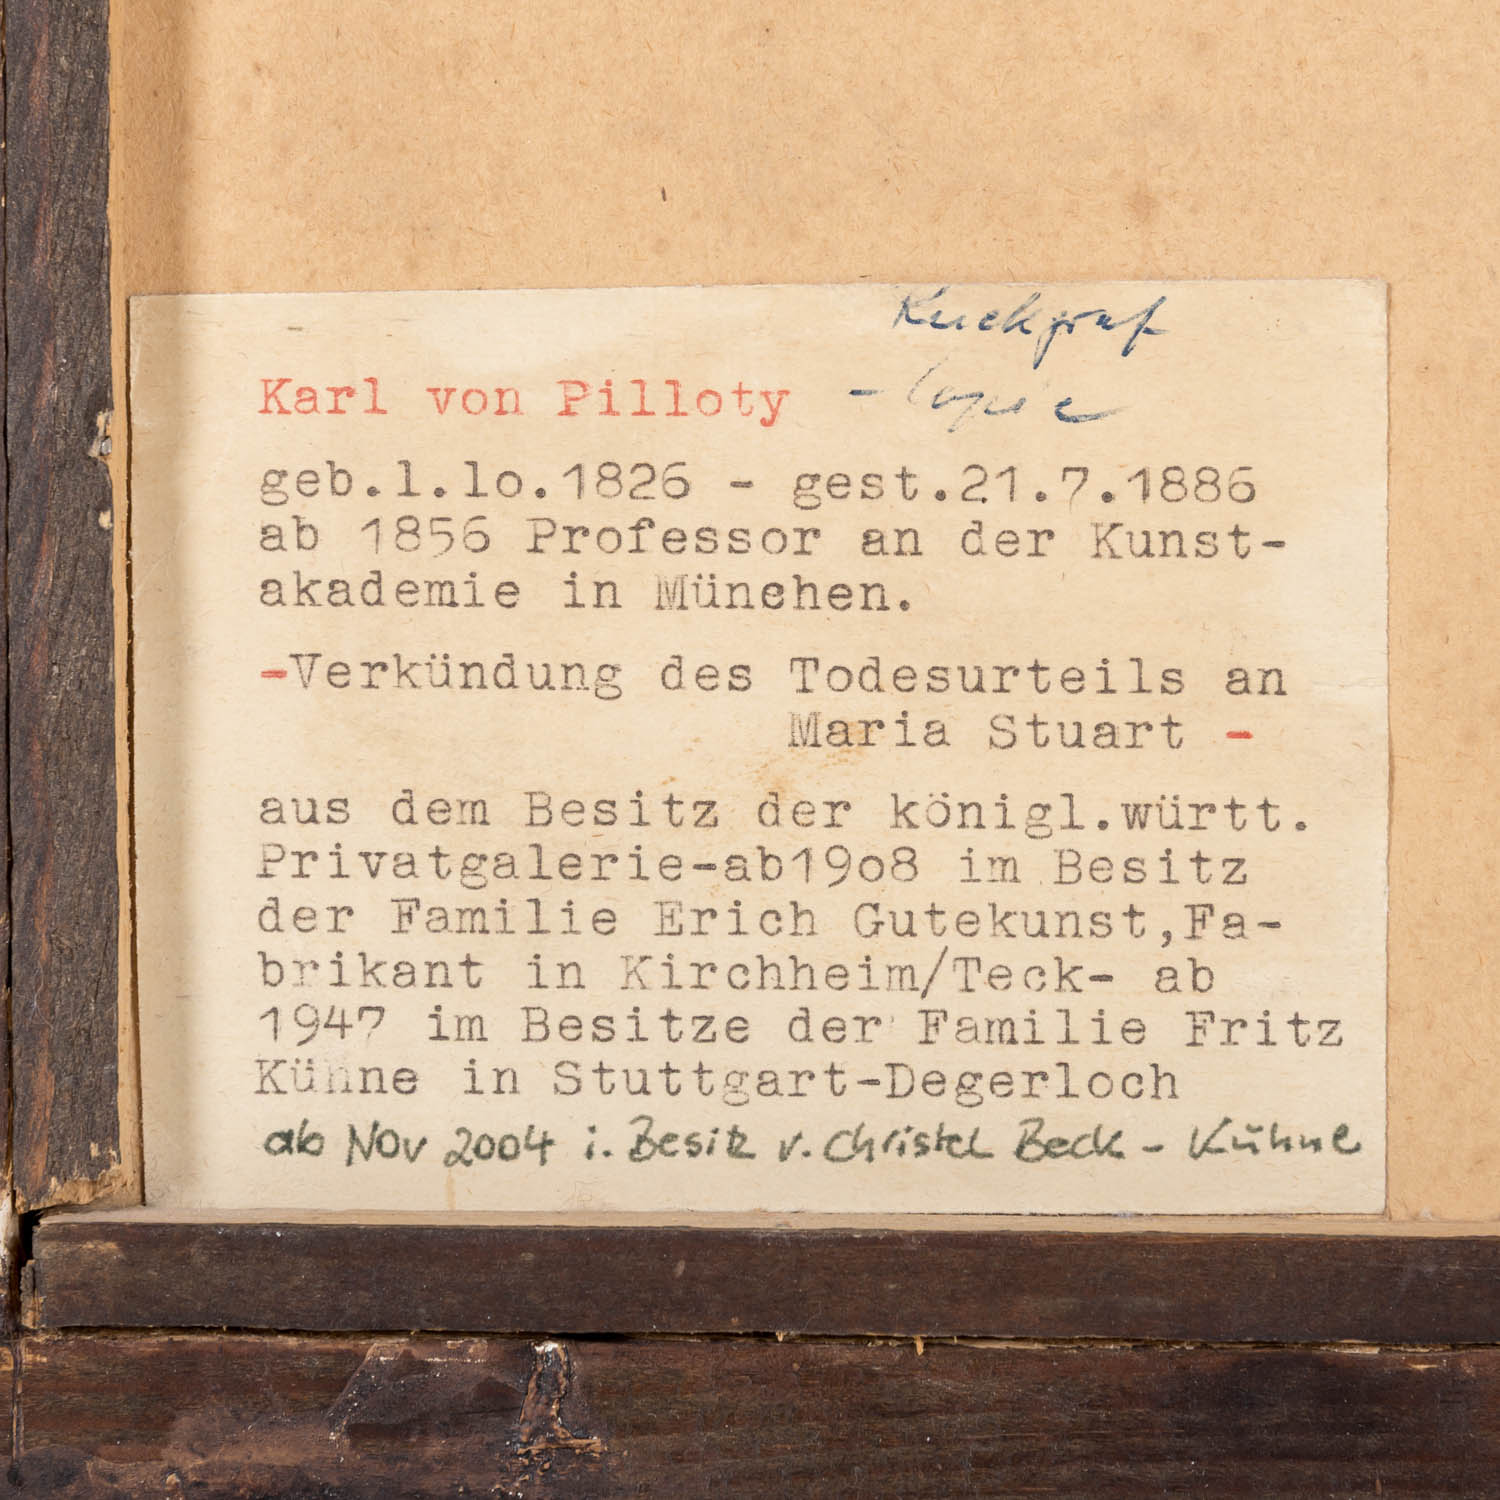 Karl von Pilloty - Copie
geb.l.lo.1826 - gest.21.7.1886
ab 1856 Professor an der Kunst-
akademie in München.
-Verkündung des Todesurteils an
Maria Stuart -
aus dem Besitz der königl.württ.
Privatgalerie-ab19o8 im Besitz
der Familie Erich Gutekunst,Fa-
brikant in Kirchheim/Teck- ab
1947 im Besitze der Familie Fritz
Kühne in Stuttgart-Degerloch
ab Nov 2004 i. Besitz v. Christel Beck - Kühne